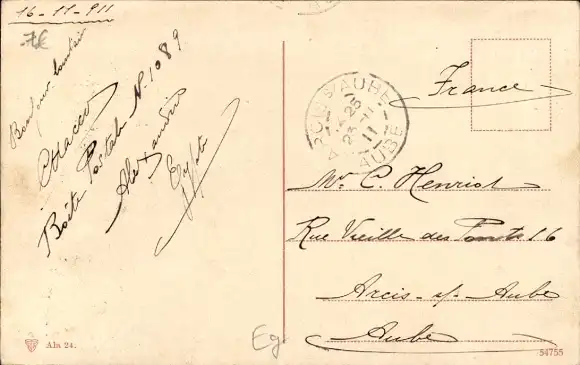 16-11-911
7€
Bonjour lointain
Boîte Postale No 1089
Alexandrie
Egypte
France
ARCIS S/AUBE
25
23-11
11
AUBE
Mr C. Henriot
Rue Vieille des Ponts 16
Arcis-s/-Aube
Aube
Eg
Aln 24.
54755